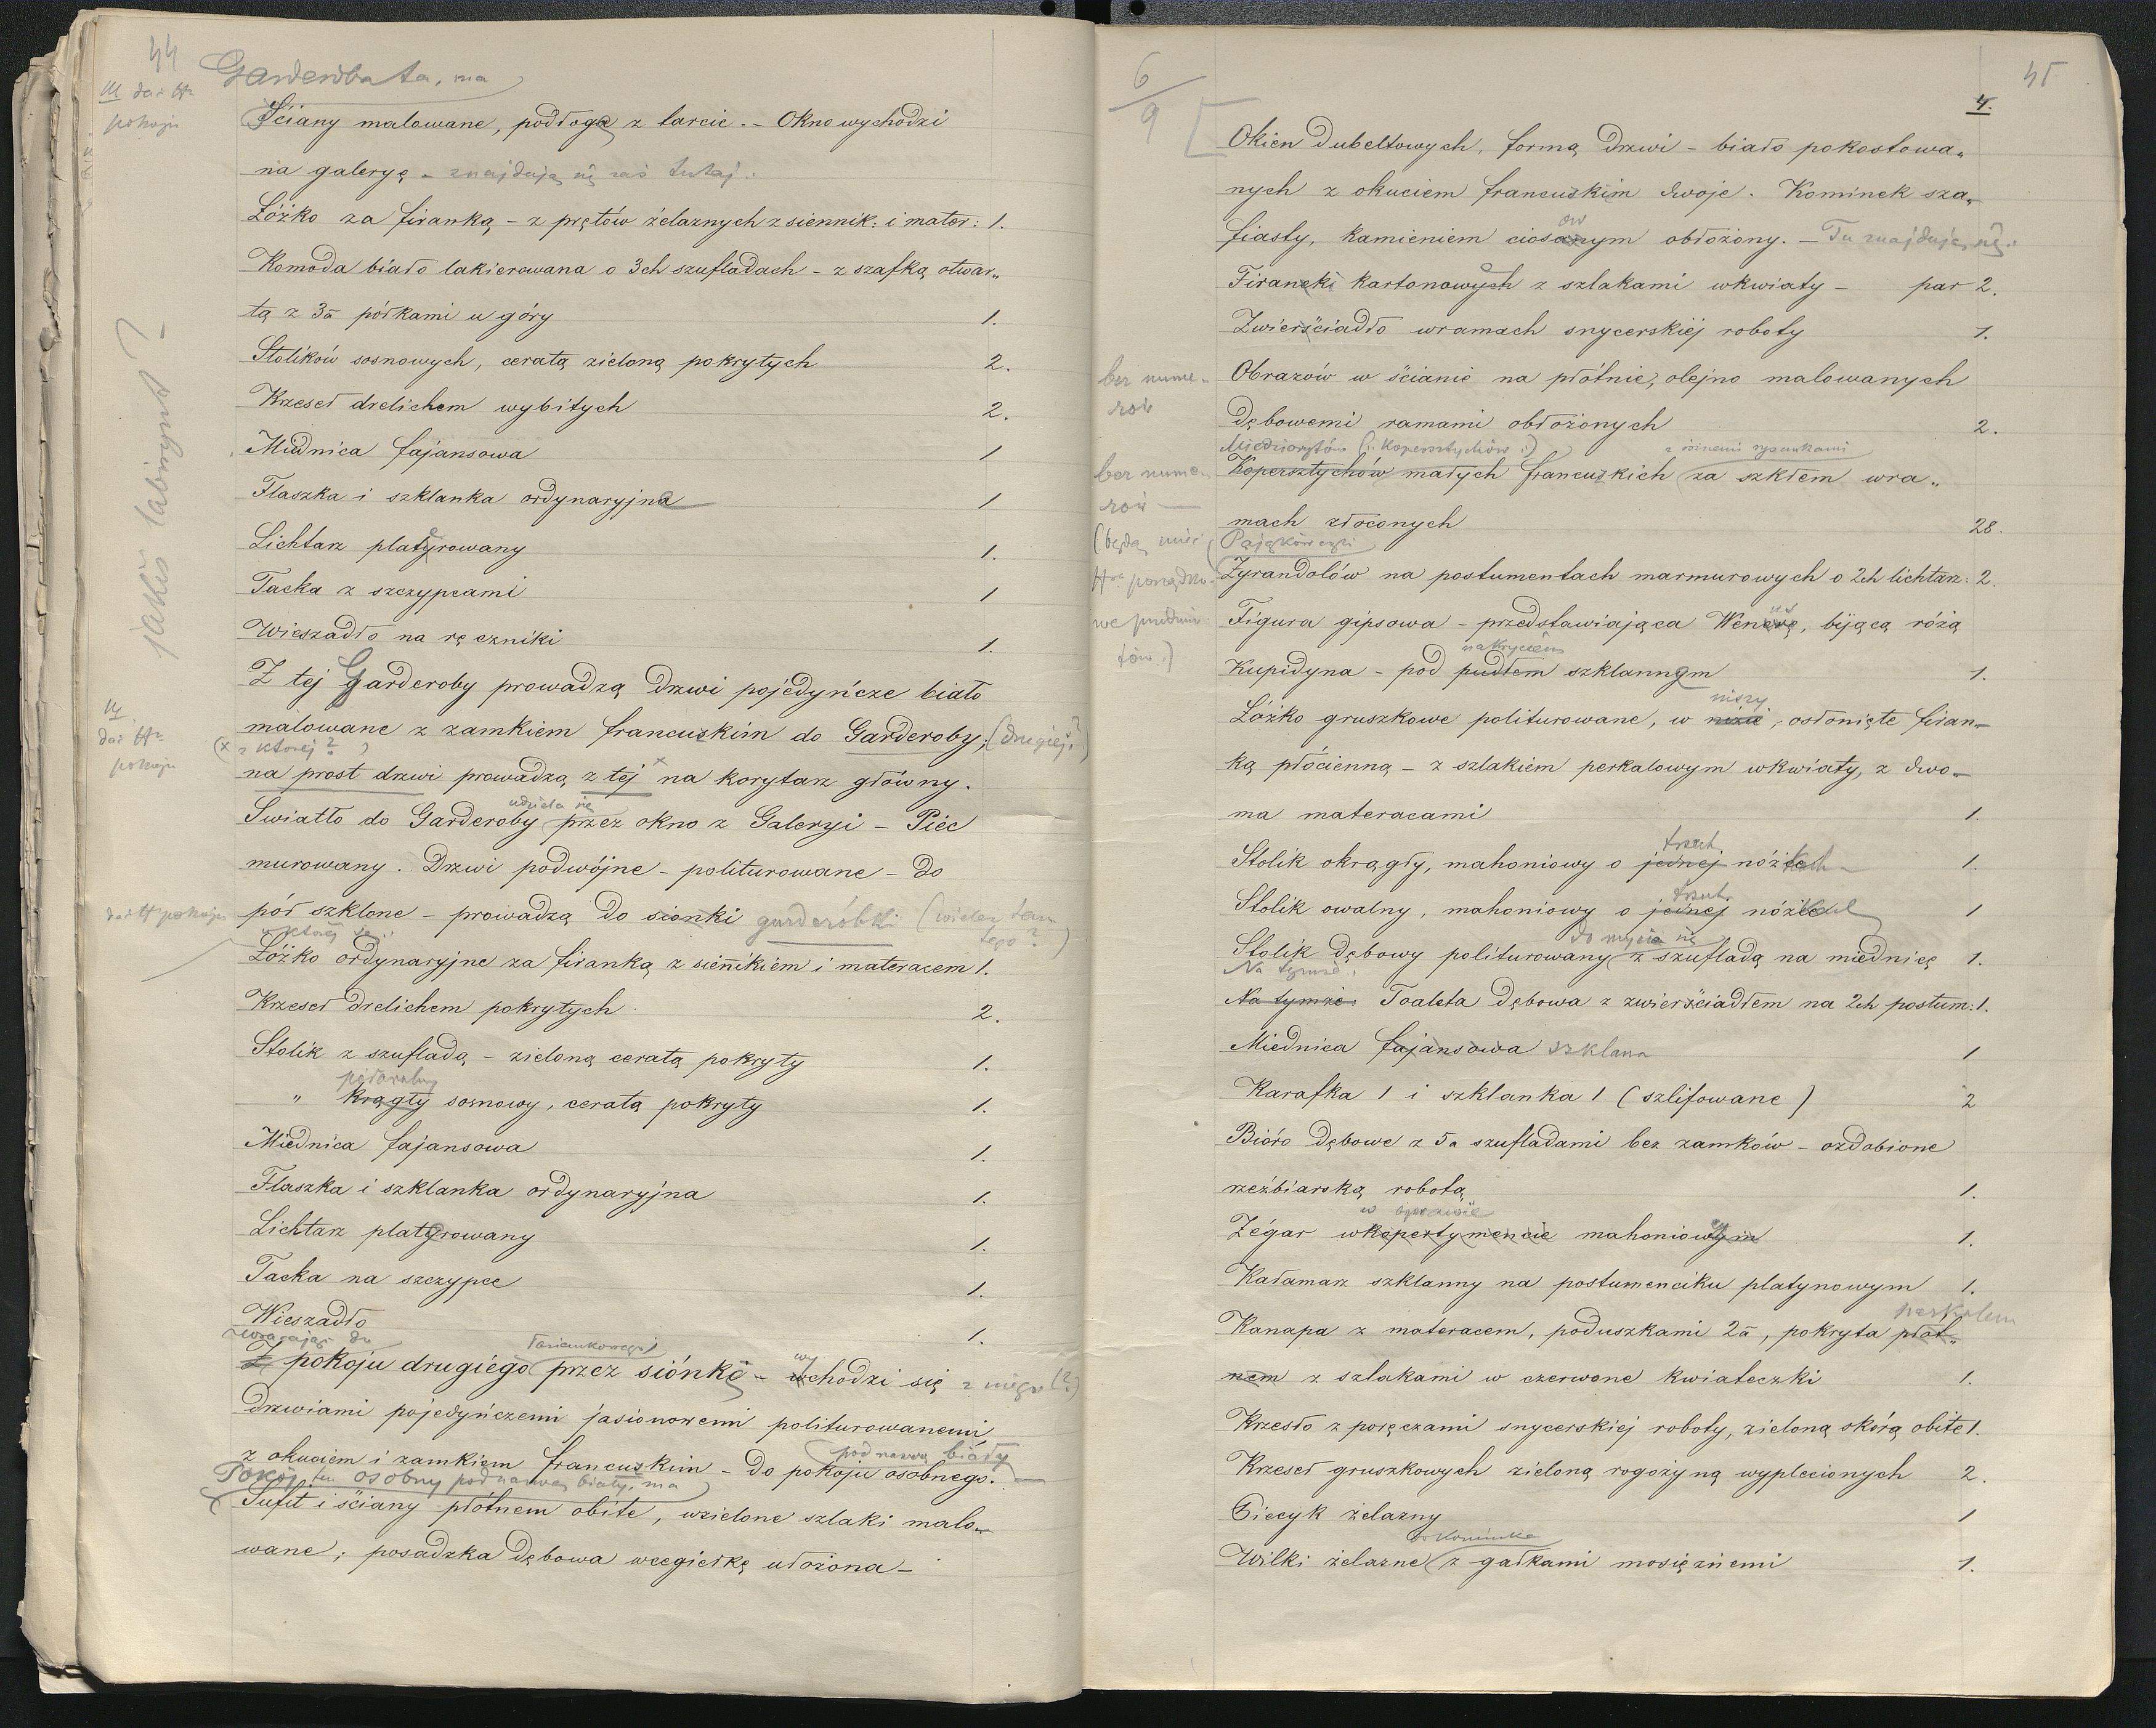 44
Garderoba ta, ma
III dać Nr
pokoju
Ściany malowane, podłoga z tarcic. – Okno wychodzi
na galeryę – znajdują się zaś tutaj:
Łóżko za firanką – z prętów żelaznych z siennik: i mater: 1.
Komoda biało lakierowana o 3ch szufladach – z szafką otwar„
tą z 3a półkami u góry 1.
jakiś labirynt?
Stolików sosnowych, ceratą zieloną pokrytych 2.
Krzeseł drelichem wybitych 2.
Miednica fajansowa 1
Flaszka i szklanka ordynaryjna 1
Lichtarz platyrowany 1.
Tacka z szczypcami 1
Wieszadło na ręczniki 1.
Z tej Garderoby prowadzą drzwi pojedyńcze biało
IV
dać Nr
pokoju
malowane z zamkiem francuskim do Garderoby; (drugiej?)
(x z której?)
na prost drzwi prowadzą z tej x na korytarz główny.
udziela się
Swiatło do Garderoby przez okno z Galeryi – Piec
murowany. Drzwi podwójne – politurowane – do
dać Nr pokoju
pół szklone – prowadzą do sionki garderóbki (wieleż tam
tego?)
w której są:
Łóżko ordynaryjne za firanką z siennikiem i materacem 1.
Krzeseł drelichem pokrytych 2.
Stolik z szufladą – zieloną ceratą pokryty 1.
półowalny
„ krągły sosnowy, ceratą pokryty 1.
Miednica fajansowa 1.
Flaszka i szklanka ordynaryjna 1.
Lichtarz platyrowany 1.
Tacka na szczypce 1.
Wieszadło 1.
Wracając do
Z pokoju drugiego przez siónkę – wychodzi się z niego (?)
drzwiami pojedyńczemi jasionowemi politurowanemi,
z okuciem i zamkiem francuskim – do pokoju osobnego.
pod nazwą biały
Pokój ten osobny pod nazwą biały, ma
Sufit i ściany płótnem obite, wzielone szlaki malo„
wane; posadzka dębowa wcegiełkę ułożona –
6/9
45
4.
Okien dubeltowych, formą drzwi – biało pokostowa„
nych z okuciem francuskim dwoje. Kominek sza„
ow
fiasty, kamieniem ciosanym obłożony. – Tu znajdują się:
Firanek kartonowych z szlakami wkwiaty – par 2.
Zwierściadło wramach snycerskiéj roboty 1.
bez nume„
rów
Obrazów w ścianie na płótnie, olejno malowanych
dębowemi ramami obłożonych 2.
Miedziorytów (: Kopersztychów :)
z różnemi rysunkami
bez nume„
rów
Kopersztychów małych francuzkich za szkłem wra„
mach złoconych 28.
(będą mieć
Nra porządko„
we przedmio„
tów.)
Pająków czyli
Żyrandolów na postumentach marmurowych o 2ch lichtarz: 2.
Figura gipsowa – przedstawiająca Wenerę, bijącą różą
nakryciem
Kupidyna – pod pudłem szklannem 1.
niszy
Łóżko gruszkowe politurowane, w niżie, osłonięte firan„
ką płócienną – z szlakiem perkalowym wkwiaty, z dwo„
ma materacami 1.
trzech
Stolik okrągły, mahoniowy o jednej nóżkach 1.
trzech
Stolik owalny, mahoniowy o jednej nóżkach 1
do mycia się
Stolik dębowy politurowany z szufladą na miednicę 1.
Na tymże:
Na tymże: Toaleta dębowa z zwierściadłem na 2ch postum: 1.
Miednica fajansowa szklana 1
Karafka 1 i szklanka 1 (szlifowane) 2
Bióro dębowe z 5a szufladami bez zamków – ozdobione
rzeźbiarską robotą 1.
w oprawie
Zégar wkopertymencie mahoniowym 1.
Kałamarz szklanny na postumenciku platynowym 1.
perkalem
Kanapa z materacem, poduszkami 2a, pokryta płót„
nem z szlakami w czerwone kwiateczki 1.
Krzesło z poręczami snycerskiej roboty, zieloną skórą obite 1.
Krzeseł gruszkowych zieloną rogożyną wyplecionych 2.
Piecyk żelazny 1
do kominka
Wilki żelazne z gałkami mosiężnemi 1.